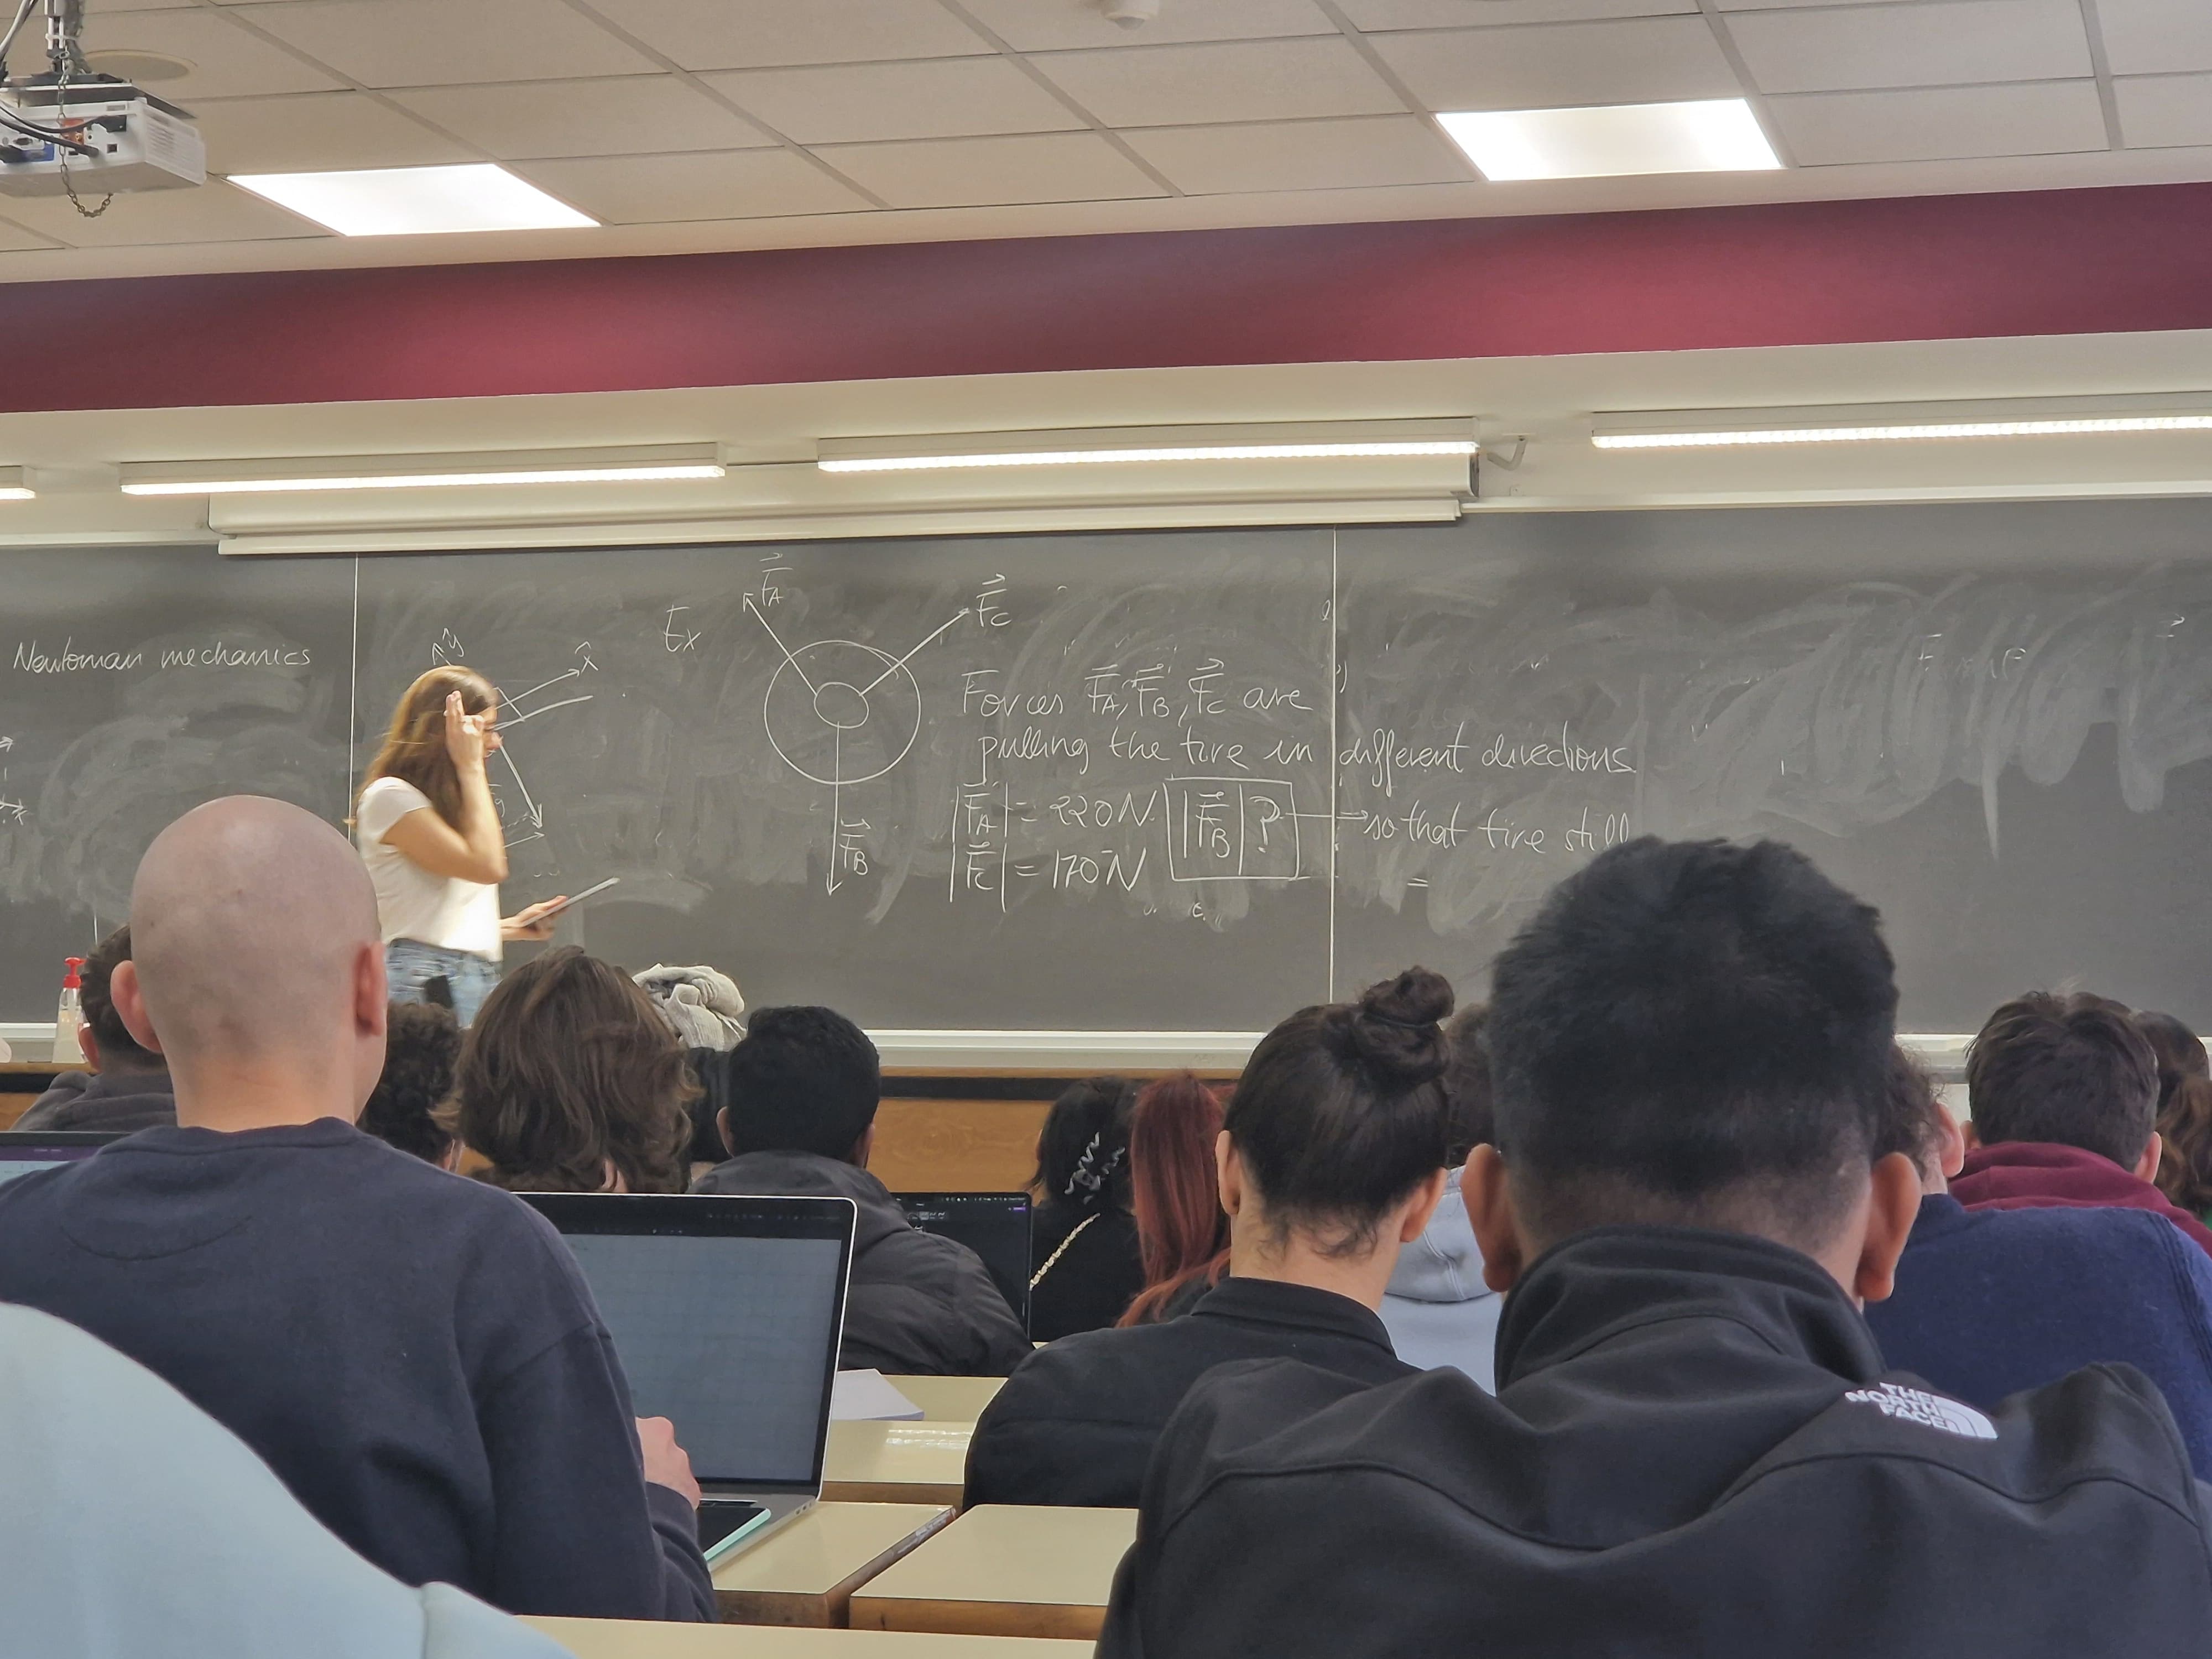 Newtonian mechanics
ŷ
x̂
Ex
F⃗A
F⃗C
F⃗B
Forces F⃗A, F⃗B, F⃗C are
pulling the tire in different directions
|F⃗A| = 220N |F⃗B| ? → so that tire still
|F⃗C| = 170N
=
THE
NORTH
FACE